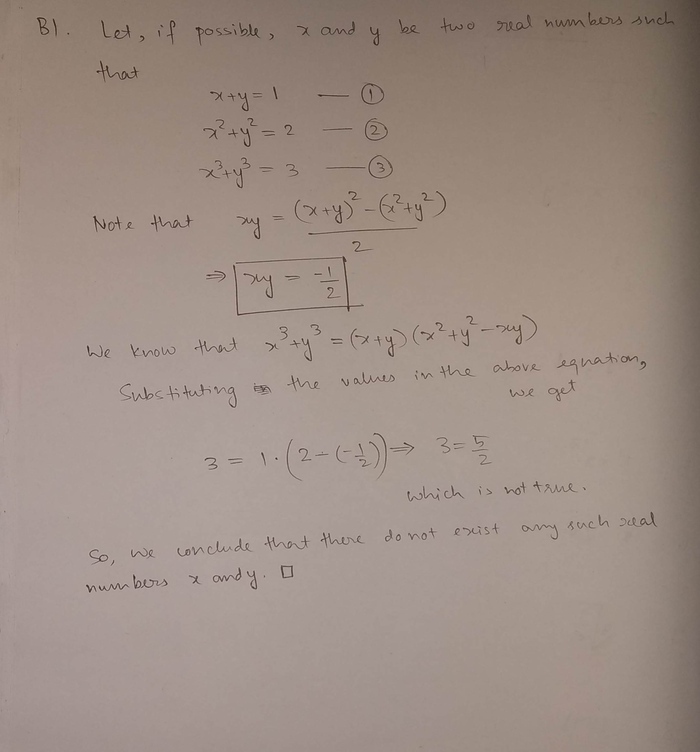 B1. Let, if possible, x and y be two real numbers such
that
x+y = 1 — ①
x²+y² = 2 — ②
x³+y³ = 3 — ③
Note that xy = ((x+y)² - (x²+y²))/2
⇒ xy = -1/2
We know that x³+y³ = (x+y)(x²+y²-xy)
Substituting the values in the above equation,
we get
3 = 1·(2-(-1/2)) ⇒ 3 = 5/2
which is not true.
So, we conclude that there do not exist any such real
numbers x and y. □